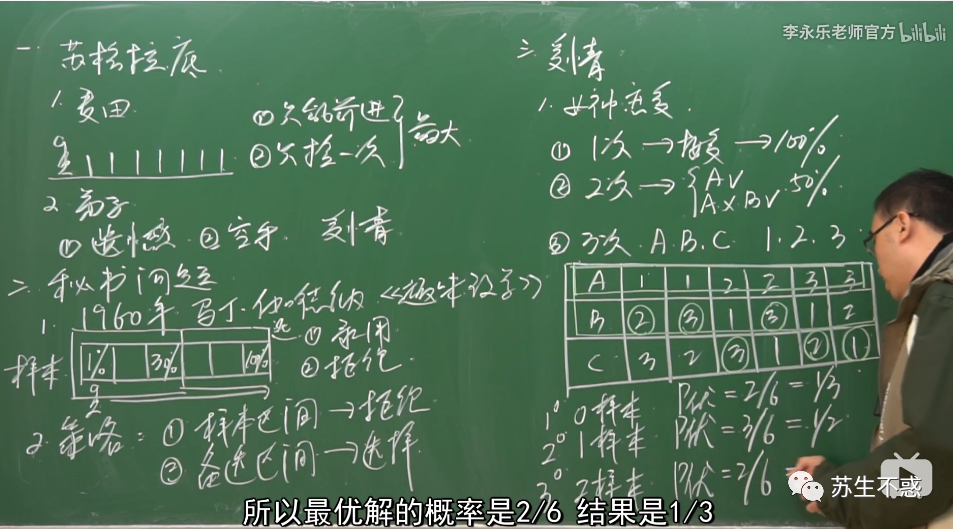 李永乐老师官方 bilibili
一. 苏格拉底
1. 麦田
① 只能前进
② 只捡一次
最大
2. 弟子
① 2. 空手
二. 秘书问题
1. 1960年 马丁·伽德纳《趣味数学》
样本
1% 30% 100%
① 录用
② 拒绝
2. 策略: ① 样本区间→拒绝
② 备选区间→选择
三.
1. 女神恋爱
① 1次→接受→100%
② 2次→ A√ A×B√ 50%
③ 3次. A. B. C 1. 2. 3
A 1 1 2 2 3 3
B ② ③ 1 ③ 1 2
C 3 2 ③ 1 ② ①
1° 0样本 P优=2/6=1/3
2° 1样本 P优=3/6=1/2
3° 2样本 P优=2/6=
苏生不惑
所以最优解的概率是2/6 结果是1/3